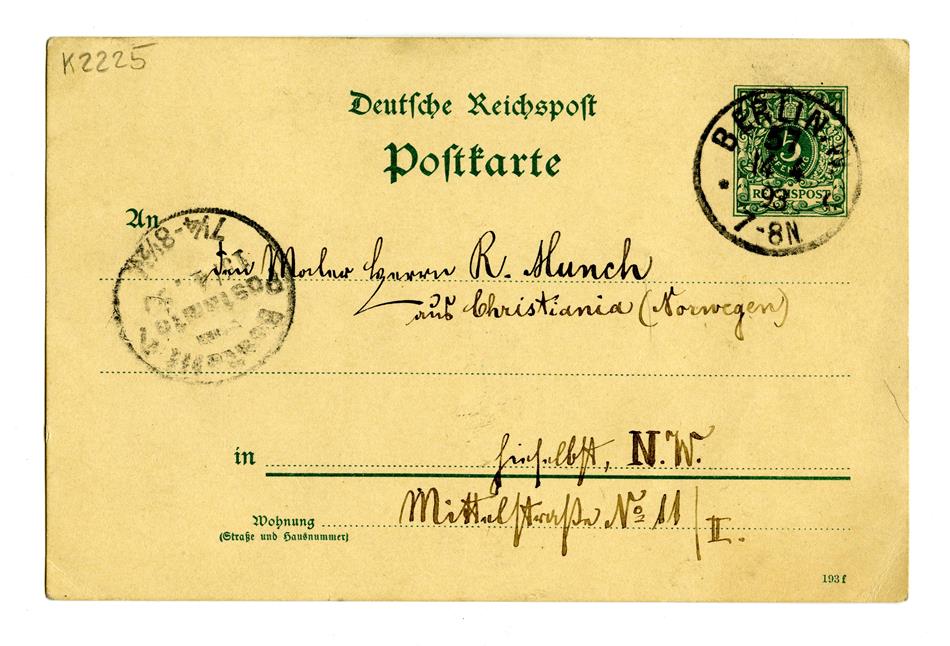 K2225
Deutsche Reichspost
Postkarte
BERLIN
5
REICHSPOST
14 4
93
7-8N
An
den Maler Herrn R. Munch
aus Christiania (Norwegen)
7¼-8½
Bestellt
Postamt
in hieselbst, N.W.
Wohnung Mittelstraße No 11/II.
(Straße und Hausnummer)
193 f